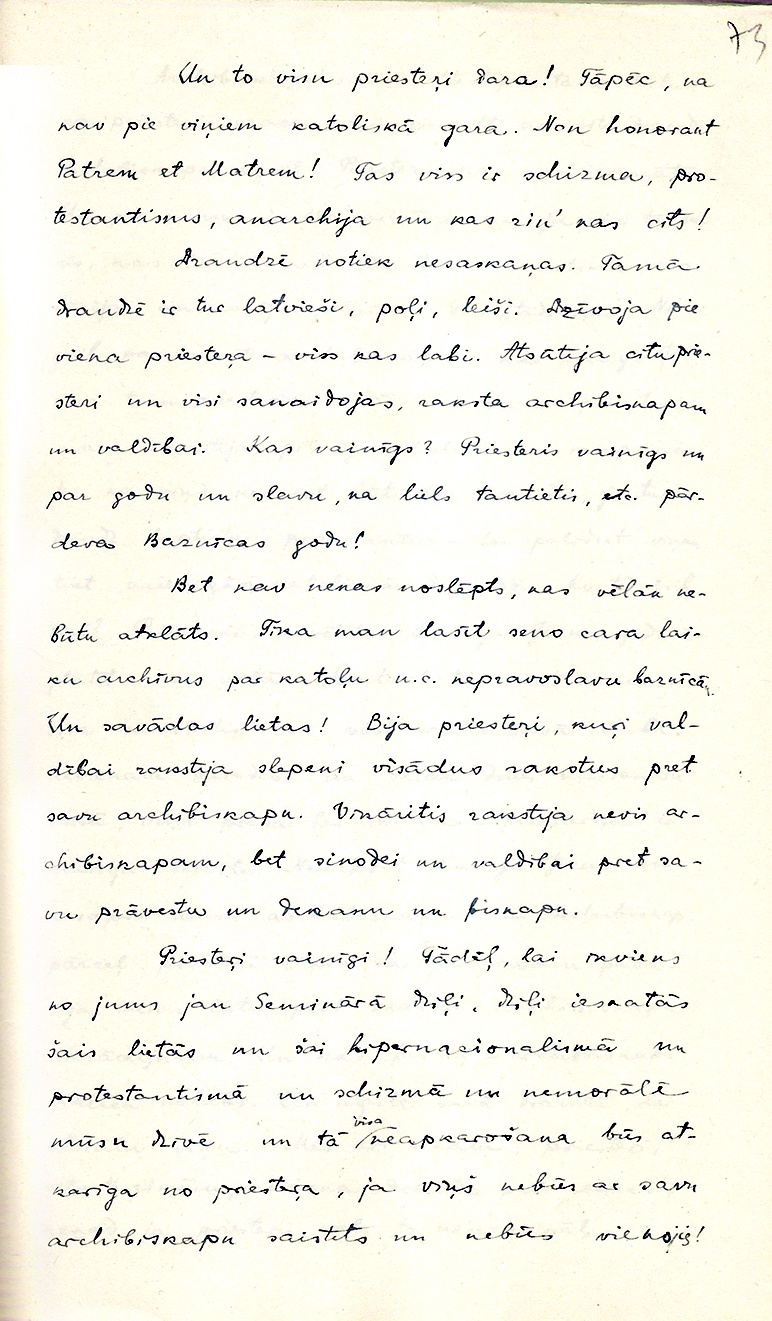 73
Un to visu priesteŗi dara! Tāpēc, ka
nav pie viņiem katoliskā gara. Non honorant
Patrem et Matrem! Tas viss ir schizma, pro-
testantisms, anarchija un kas zin' kas cits!
Draudzē notiek nesaskaņas. Tamā
draudzē ir tur latvieši, poļi, leiši. Dzīvoja pie
viena priesteŗa – viss kas labi. Atsūtīja citu prie-
steri un visi sanaidojas, raksta archibiskapam
un valdībai. Kas vainīgs? Priesteris vainīgs un
par godu un slavu, ka liels tautietis, etc. pār-
deva Baznīcas godu!
Bet nav nekas noslēpts, kas vēlāk ne-
būtu atklāts. Tika man lasīt seno cara lai-
ku archīvus par katoļu u.c. nepravoslavu baznīcām.
Un savādas lietas! Bija priesteŗi, kuŗi val-
dībai rakstīja slepeni visādus rakstus pret
savu archibiskapu. Vikārītis rakstīja nevis ar-
chibiskapam, bet sinodei un valdībai pret sa-
vu prāvestu un dekanu un biskapu.
Priesteŗi vainīgi! Tādēļ, lai ikviens
no jums jau Seminārā dziļi, dziļi ieskatās
šais lietās un šai hipernacionalismā un
protestantismā un schizmā un nemorālē
mūsu dzīvē un tā visa neapkarošana būs at-
karīga no priesteŗa, ja viņš nebūs ar savu
archibiskapu saistīts un nebūs vienojis!